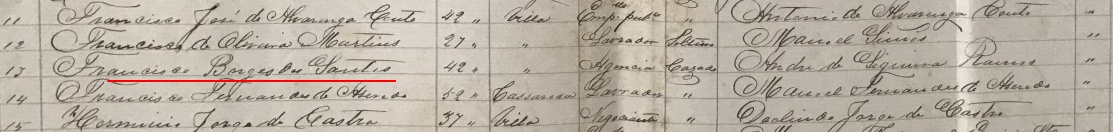 11 Francisco José de Alvarenga Couto 42 " Villa Emp. pubco Antonio de Alvarenga Couto "
12 Francisco de Oliveira Martins 27 " " Lavrador Solteiro Manoel "
13 Francisco Borges dos Santos 42 " " Agencia Cazado Andre de Siqueira Ramos "
14 Francisco Fernandes de Azevedo 52 " Lavrador " Manoel Fernandes de Azevedo "
15 Herminio Jorge de Castro 37 " Villa Negociante " Jorge de Castro "